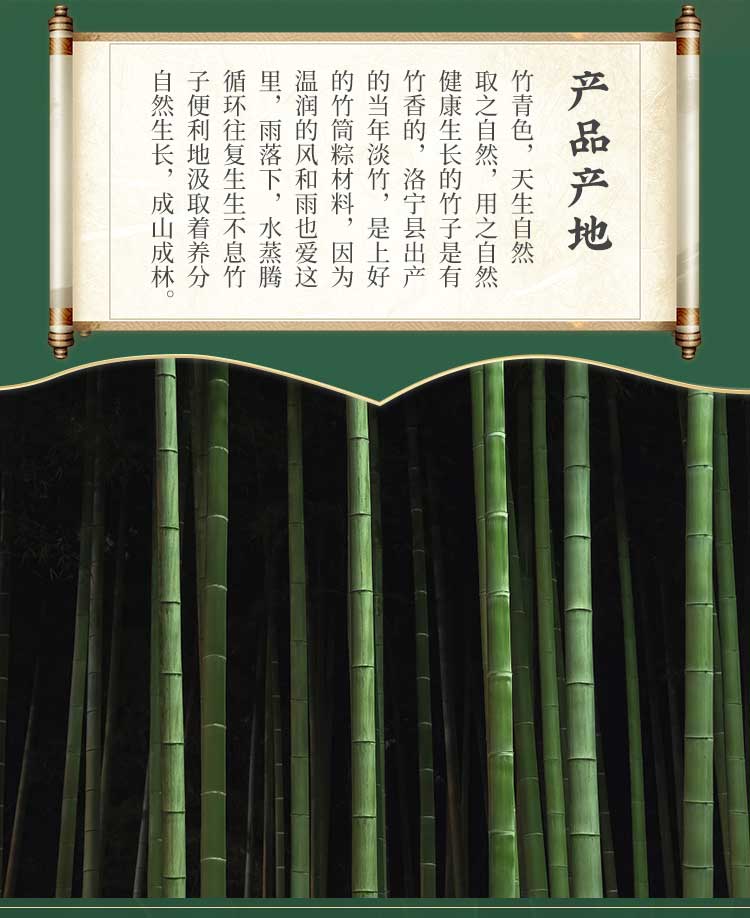 产品产地
竹青色，天生自然
取之自然，用之自然
健康生长的竹子是有
竹香的，洛宁县出产
的当年淡竹，是上好
的竹筒粽材料，因为
温润的风和雨也爱这
里，雨落下，水蒸腾
循环往复生生不息竹
子便利地汲取着养分
自然生长，成山成林。